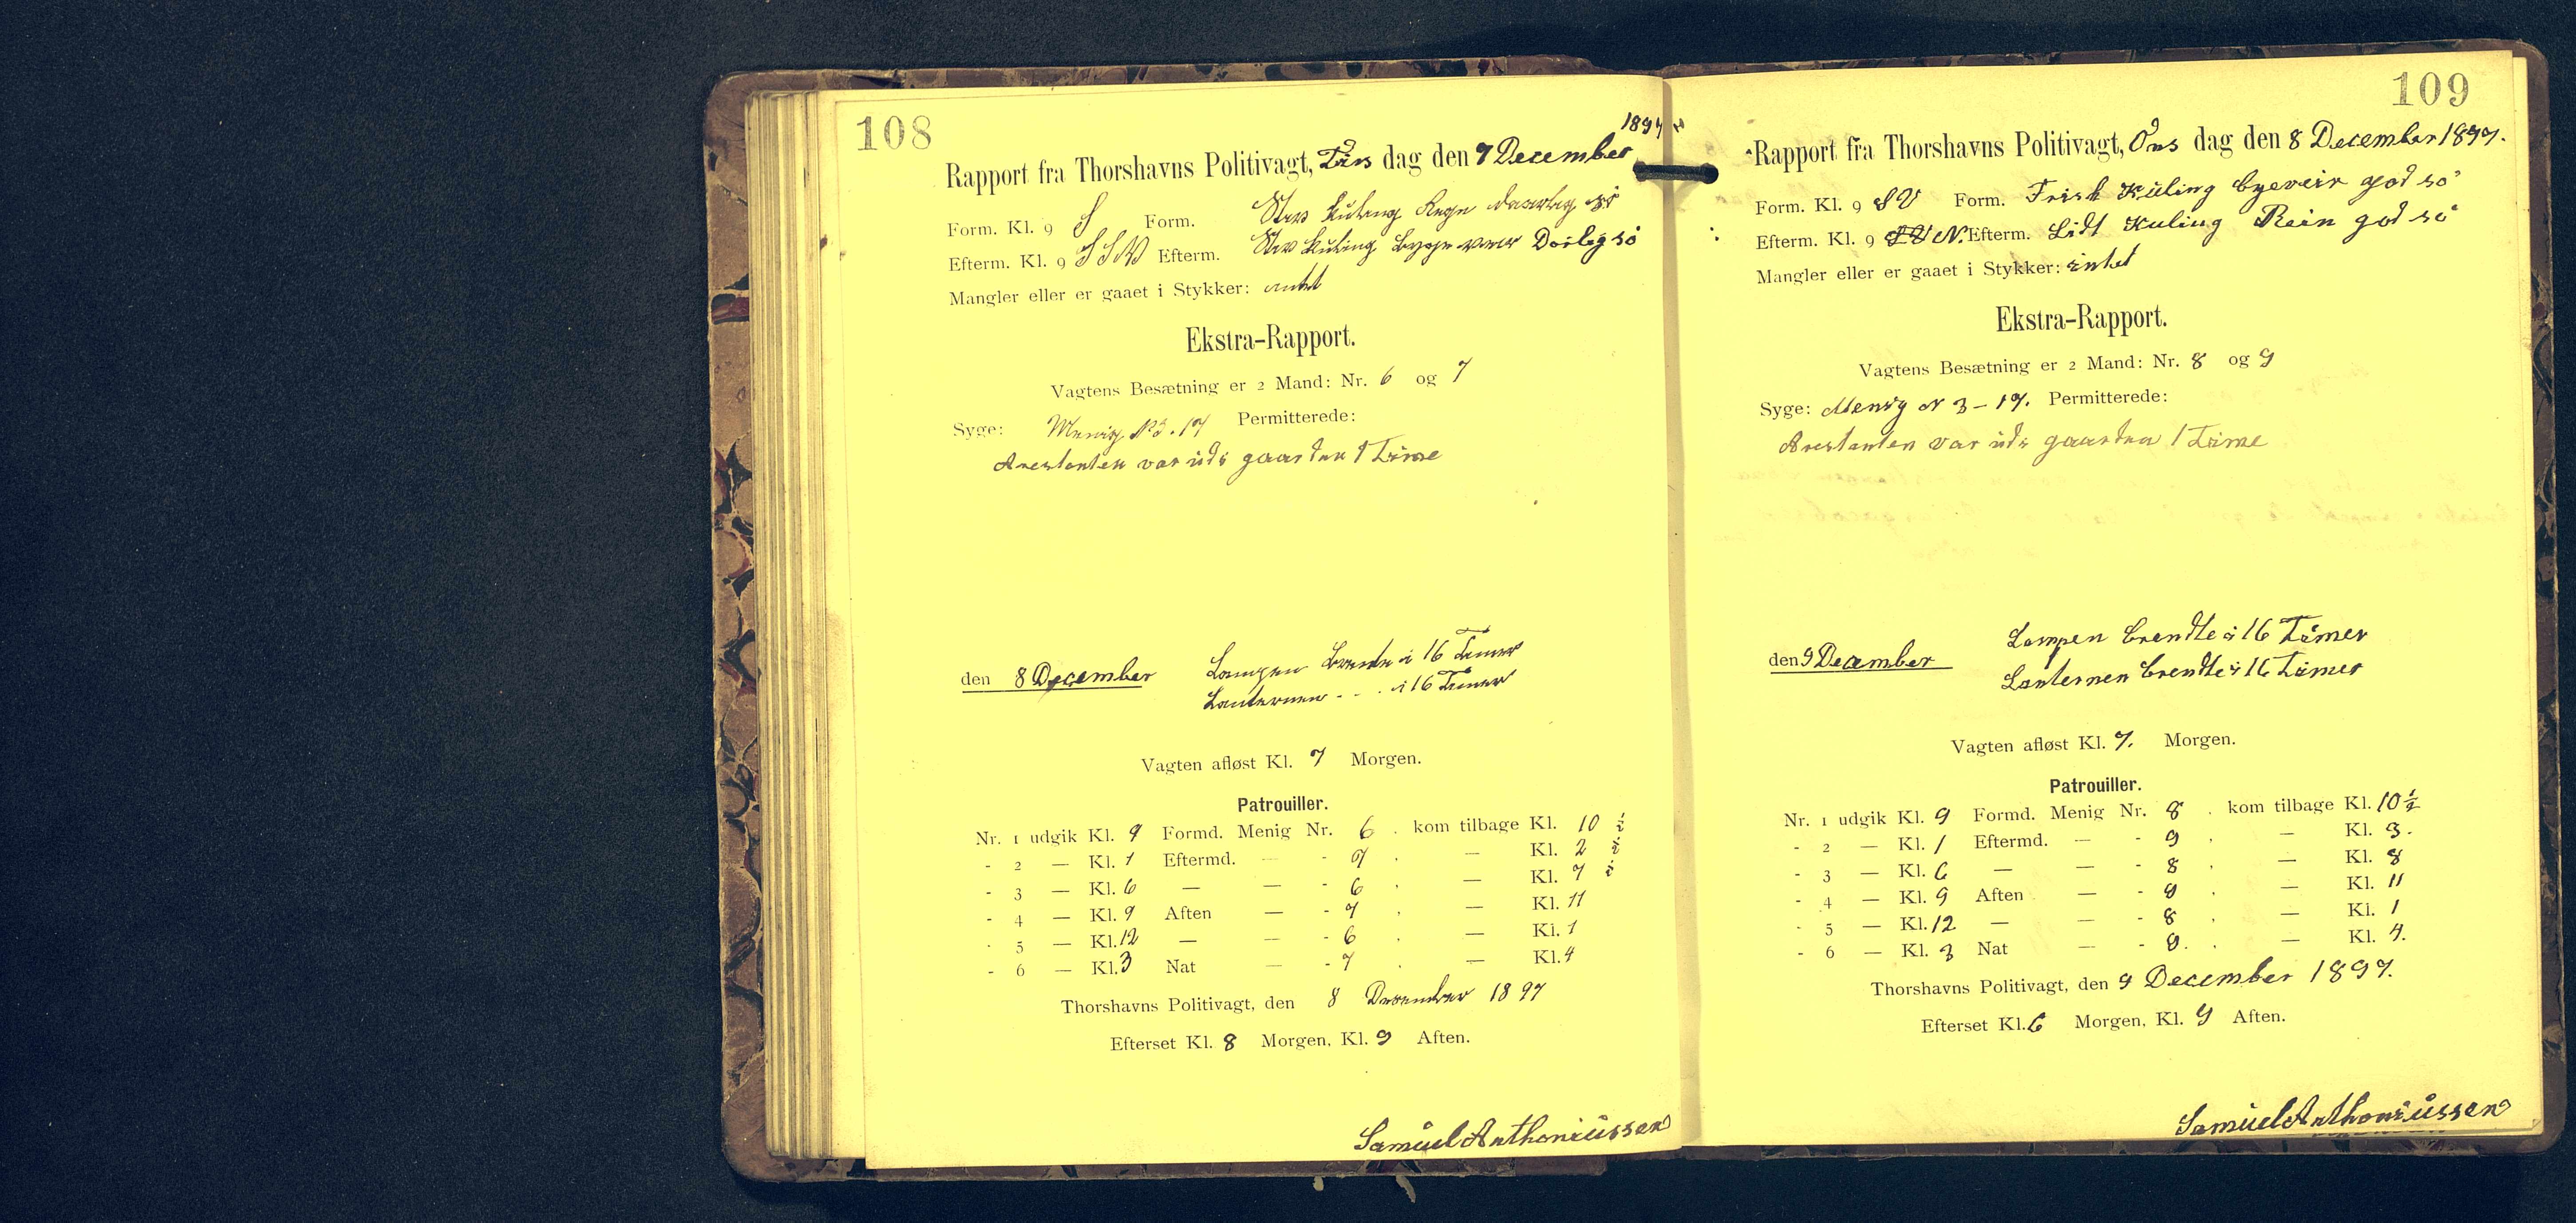 108
1897
Rapport fra Thorshavns Politivagt, Tirs dag den 7 December
Form. Kl. 9 S Form. Stiv kuling Regn daarlig sö
Efterm. Kl. 9 SSW Efterm. Stiv kuling bygeveir Dorlig sö
Mangler eller er gaaet i Stykker: intet
Ekstra-Rapport.
Vagtens Besætning er 2 Mand: Nr. 6 og 7
Syge: Menig N 3. 17 Permitterede:
Arestanten var udi gaarden 1 Time
den 8 December Lampen brende i 16 Timer
Lanternen - - . i 16 Timer
Vagten afløst Kl. 7 Morgen.
Patrouiller.
Nr. 1 udgik Kl. 9 Formd. Menig Nr. 6 . kom tilbage Kl. 10 ½
- 2 — Kl. 1 Eftermd. — - 7 . — Kl. 2 ½
- 3 — Kl. 6 — — - 6 . — Kl. 7 ½
- 4 — Kl. 9 Aften — - 7 . — Kl. 11
- 5 — Kl. 12 — — - 6 . — Kl. 1
- 6 — Kl. 3 Nat — - 7 . — Kl. 4
Thorshavns Politivagt, den 8 December 1897
Efterset Kl. 8 Morgen, Kl. 9 Aften.
Samuel Anthoniussen
109
Rapport fra Thorshavns Politivagt, Ons dag den 8 December 1897.
Form. Kl. 9 SV Form. Frisk Kuling byeveir god sö
Efterm. Kl. 9 SV N. Efterm. Lidt Kuling Rein god sö
Mangler eller er gaaet i Stykker: intet
Ekstra-Rapport.
Vagtens Besætning er 2 Mand: Nr. 8 og 9
Syge: Menig N 3 - 17. Permitterede:
Arestanten var udi gaarden 1 Time
den 9 December Lampen brendte i 16 Timer
Lanternen brendte i 16 Timer
Vagten afløst Kl. 7. Morgen.
Patrouiller.
Nr. 1 udgik Kl. 9 Formd. Menig Nr. 8 . kom tilbage Kl. 10 ½
- 2 — Kl. 1 Eftermd. — - 9 . — Kl. 3.
- 3 — Kl. 6 — — - 8 . — Kl. 8
- 4 — Kl. 9 Aften — - 9 . — Kl. 11
- 5 — Kl. 12 — — - 8 . — Kl. 1
- 6 — Kl. 3 Nat — - 9. . — Kl. 4.
Thorshavns Politivagt, den 9 December 1897.
Efterset Kl. 6 Morgen, Kl. 9 Aften.
Samuel Anthoniussen